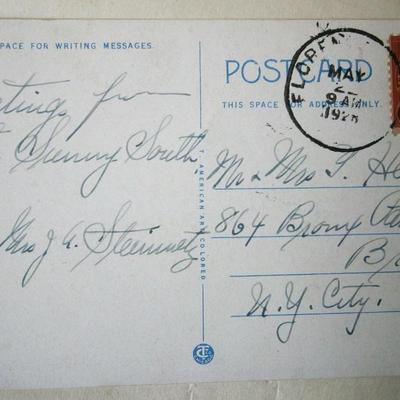 PACE FOR WRITING MESSAGES.
tings from
Sunny South
Mrs J. A. Steinmetz
C. T. AMERICAN ART COLORED
POSTCARD
THIS SPACE FOR ADDRESS ONLY.
FLOREN
MAY
2
9 AM
192
Mr & Mrs
864 Bronx
B
N.Y. City.